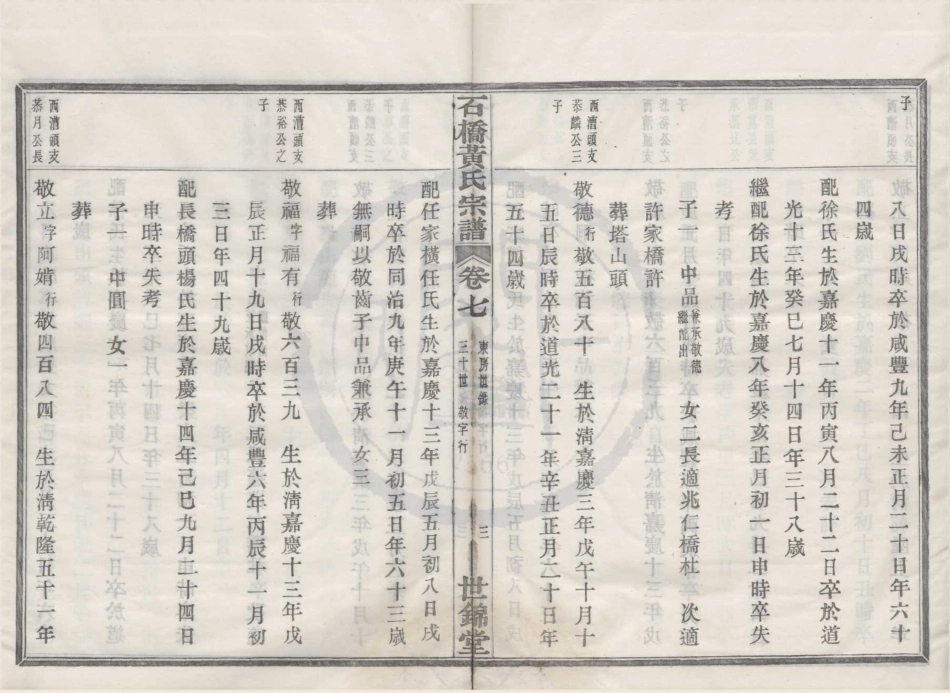 子
八日戌時卒於咸豐九年己未正月二十日年六十
四歲
配徐氏生於嘉慶十一年丙寅八月二十二日卒於道
光十三年癸巳七月十四日年三十八歲
繼配徐氏生於嘉慶八年癸亥正月初九日申時卒失
考
子一中品兼承敬德繼配出 女二長適兆仁橋杜 次適
許家橋許
葬塔山頭
西漕頭支
恭麟公三
子
敬德行敬五百八十 生於淸嘉慶三年戊午十月十
五日辰時卒於道光二十一年辛丑正月六十日年
五十四歲
石橋黃氏宗譜 卷七 東房世錄 三十世敬字行 三 世錦堂
配任家橫任氏生於嘉慶十三年戊辰五月初八日戌
時卒於同治九年庚午十一月初五日年六十三歲
無嗣以敬齒子中品兼承 女三
葬
西漕頭支
恭裕公之
子
敬福字福有行敬六百三九 生於淸嘉慶十三年戊
辰正月十九日戌時卒於咸豐六年丙辰十一月初
三日年四十九歲
配長橋頭楊氏生於嘉慶十四年己巳九月二十四日
申時卒失考
子一中圓 女一
葬
西漕頭支
恭月公長
敬立字阿㛃行敬四百八四 生於淸乾隆五十六年